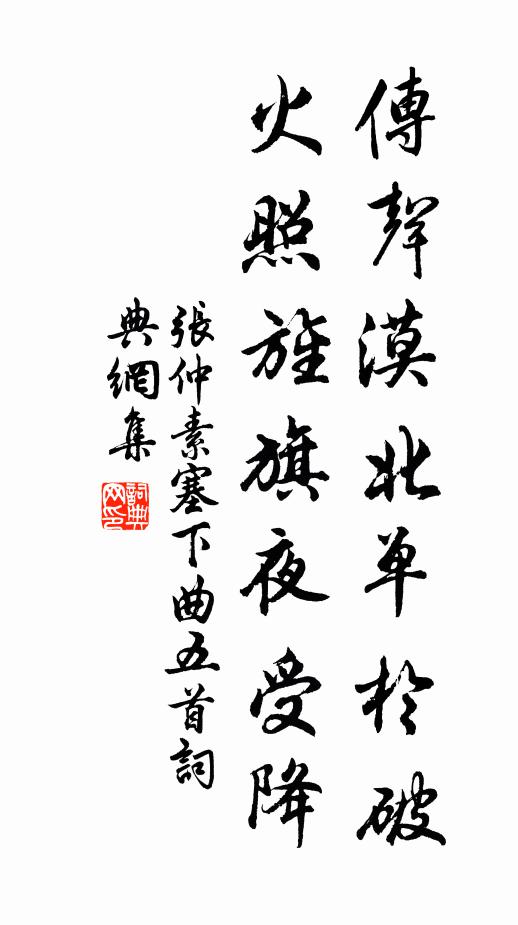 傳聲漠北單於破
火照旌旗夜受降
張仲素塞下曲五首詞
典網集
詞典
网印